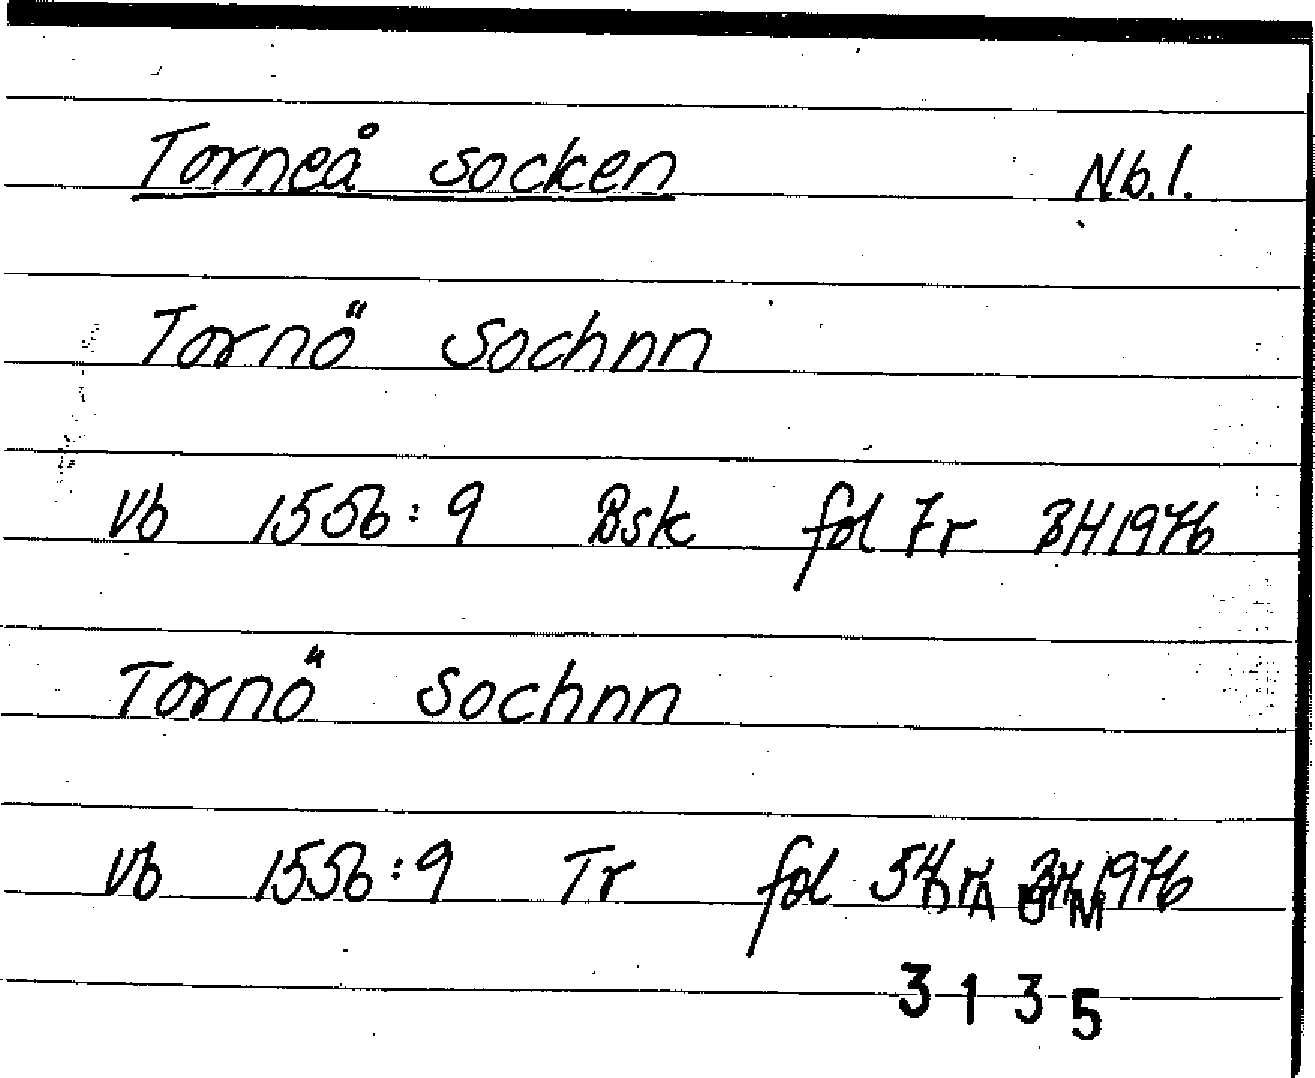 Torneå socken Nb.l.
Tornö Sochnn
Vb 1556:9 Bsk fol 7r BH1976
Tornö Sochnn
Vb 1556:9 Tr fol 54r BH1976
DAUM
3135